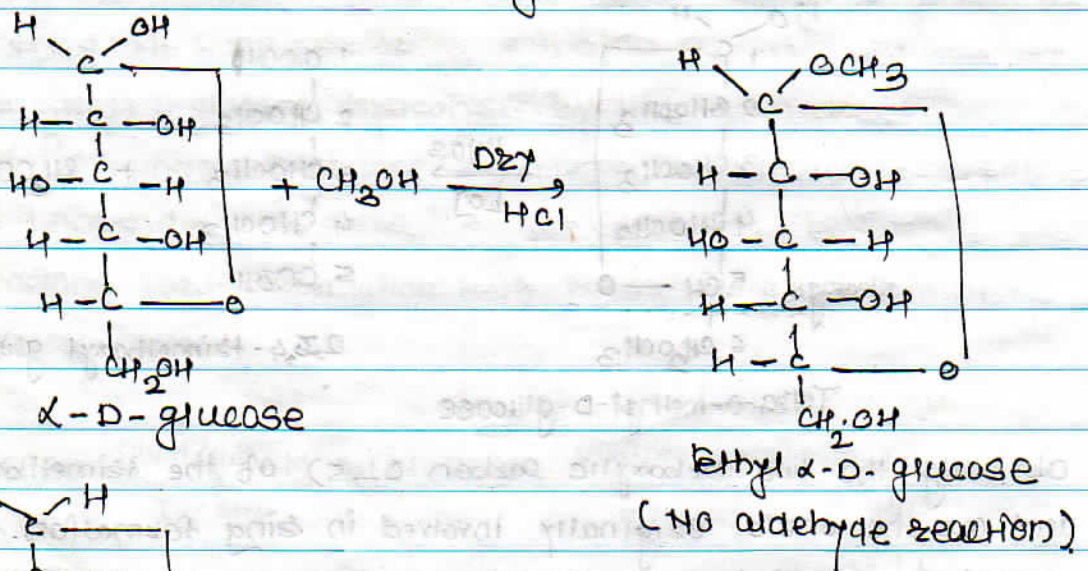 H OH
C
H – C – OH
HO – C – H
H – C – OH
H – C – O
CH2OH
α - D - glucose
+ CH3OH
Dry
HCl
H OCH3
C
H – C – OH
HO – C – H
H – C – OH
H – C – O
CH2OH
Ethyl α - D - glucose
(No aldehyde reaction)
C H